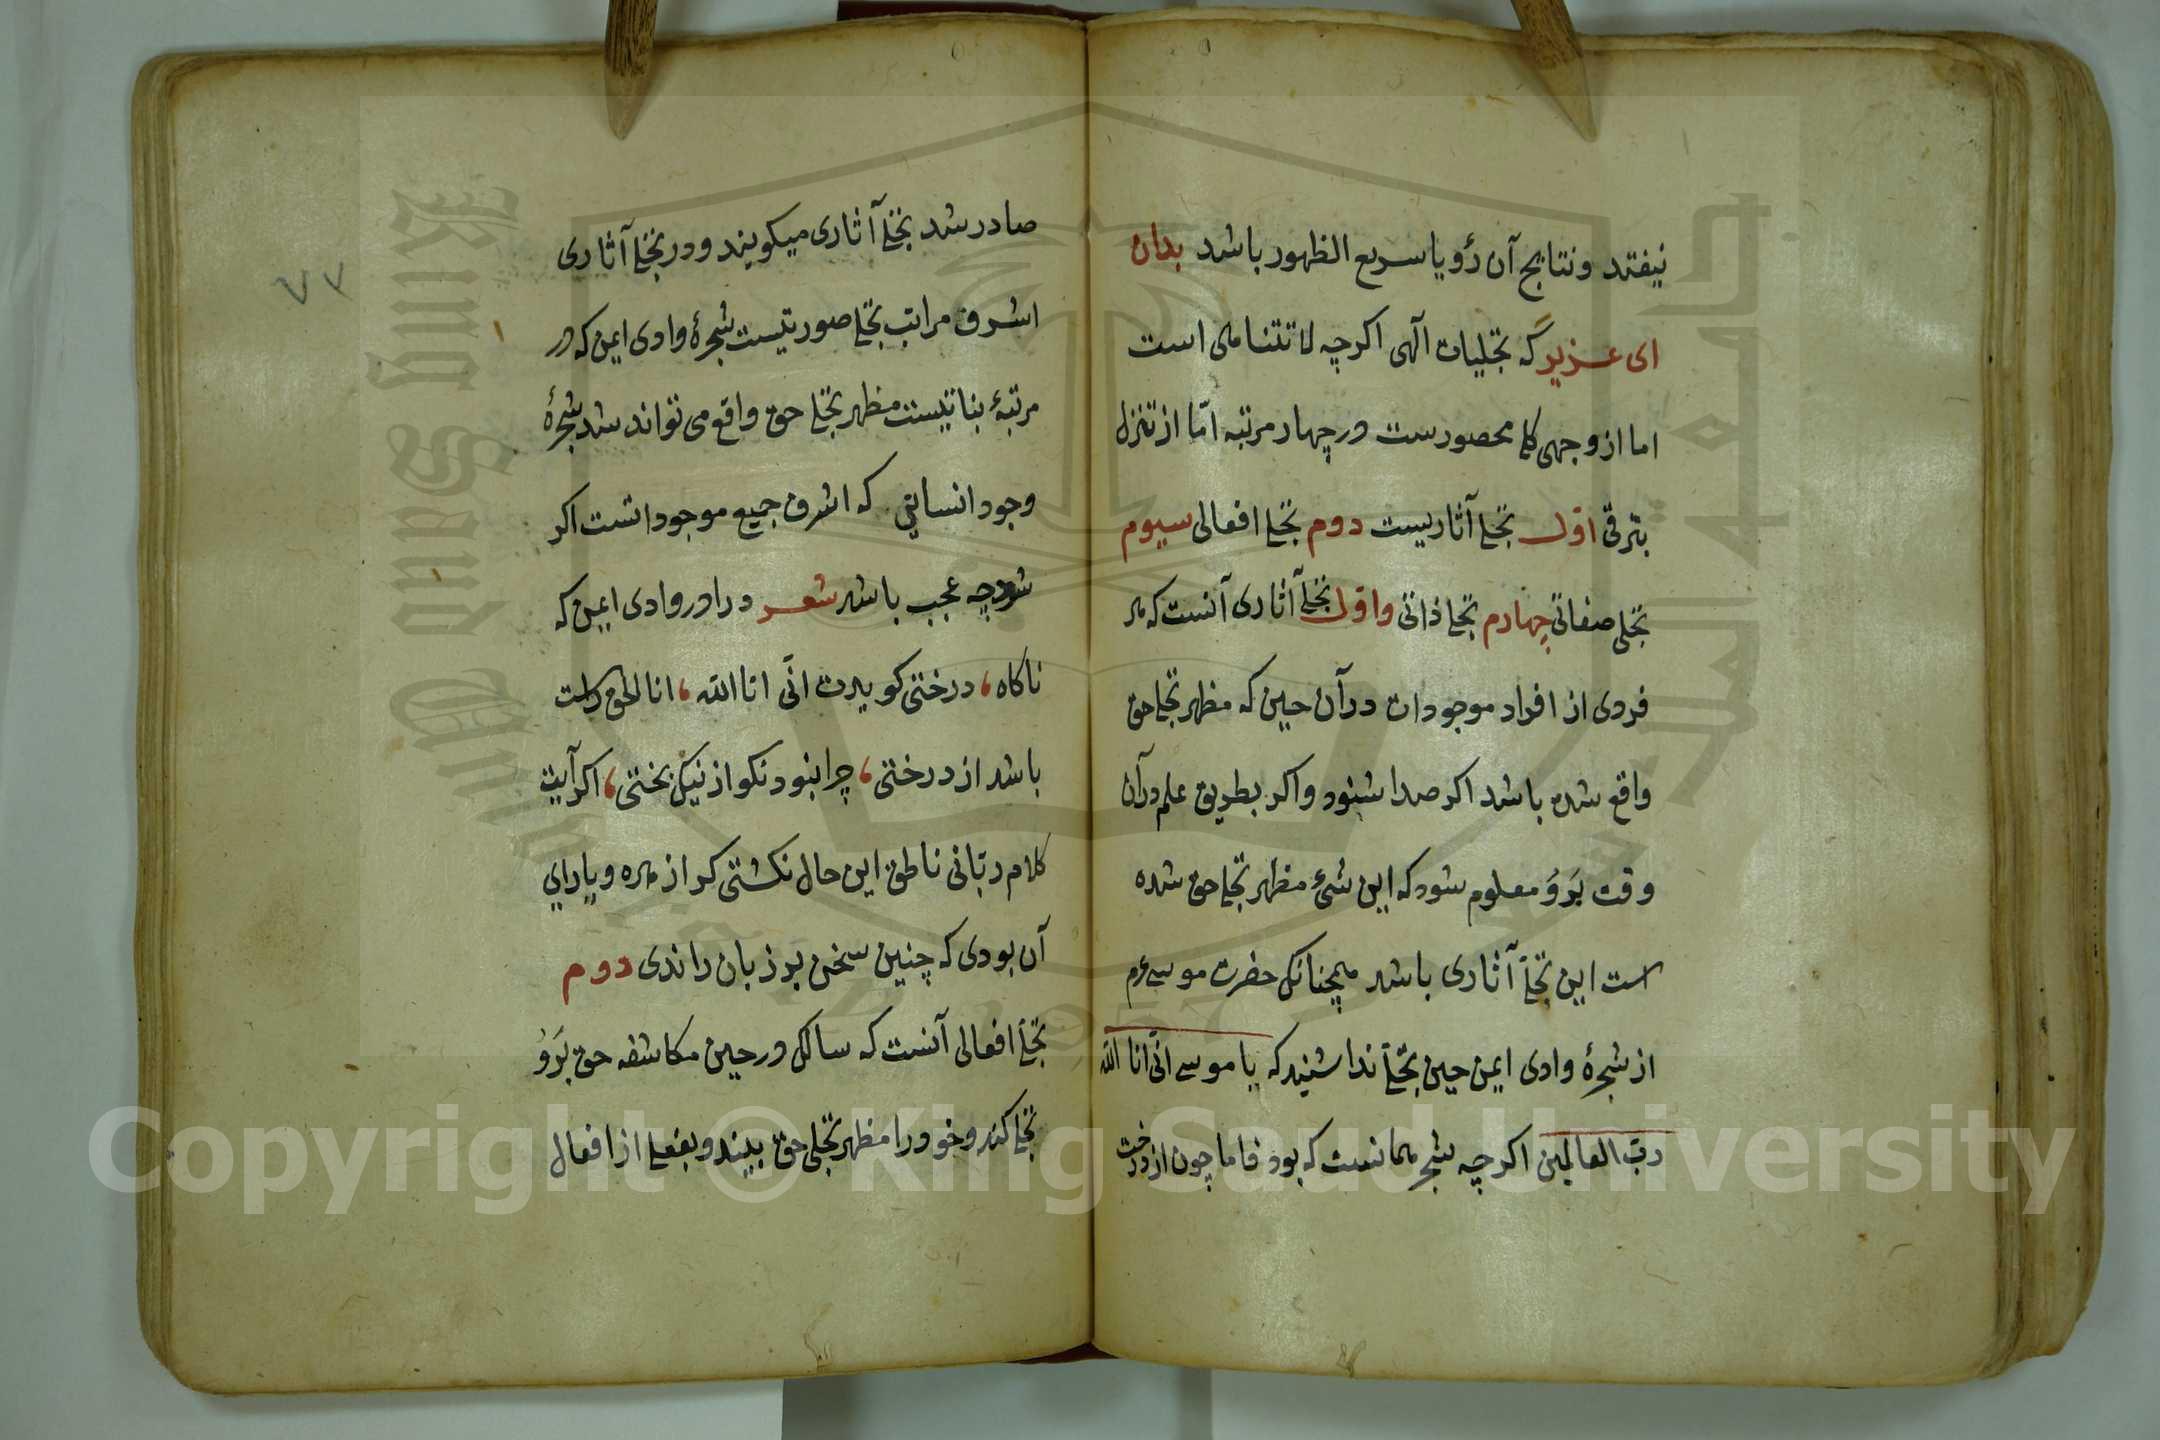 نیفتد ونتایج آن رؤیا سریع الظهور باشد بدان
ای عزیز که تجلیات الهی اکرچه لا تتناهی است
اما از وجهی کلا محصورست در چهار مرتبه امّا از تنزل
بترقی اوّل تجلئ آثاریست دوم تجلئ افعالی سیوم
تجلی صفاتی چهارم تجلئ ذاتی واوّل تجلئ آثاری آنست که هر
فردی از افراد موجودات در آن حین که مظهر تجلئ حق
واقع شده باشد اکر صدا شنود واکر بطریق علم در آن
وقت بَرَوُ معلوم شود که این شئ مظهر تجلئ حق شده
است این تجلئ آثاری باشد همچنانکه حضرت موسی عم
از شجرهٔ وادی ایمن حین تجلئ ندا شنید که یا موسی انّی انا الله
ربّ العالمین اکرچه شجر همانست که بود فاما چون از درخت
صادر شد تجلئ آثاری میکویند ودر تجلئ آثاری
اشرف مراتب تجلئ صوریست شجرهٔ وادی ایمن که در
مرتبهٔ نباتیست مظهر تجلئ حق واقع می تواند شد شجرهٔ
وجود انسانی که اشرف جمیع موجوداتست اکر
شود چه عجب باشد شعر درا در وادی ایمن که
ناکاه، درختی کویدت انّی انا الله، انا الحق راست
باشد از درختی، چرا نبود نکو از نیک بختی، اکر آیت
کلام ربّانی ناطق این حال نکشتی کرا زهره ویارای
آن بودی که چنین سخن بر زبان راندی دوم
تجلئ افعالی آنست که سالک در حین مکاشفه حق بَرَوُ
تجلئ کند وخود را مظهر تجلی حق بیند وبفعلی از افعال
٧٧
جامعة الملك سعود
King Saud University
1957
Copyright © King Saud University